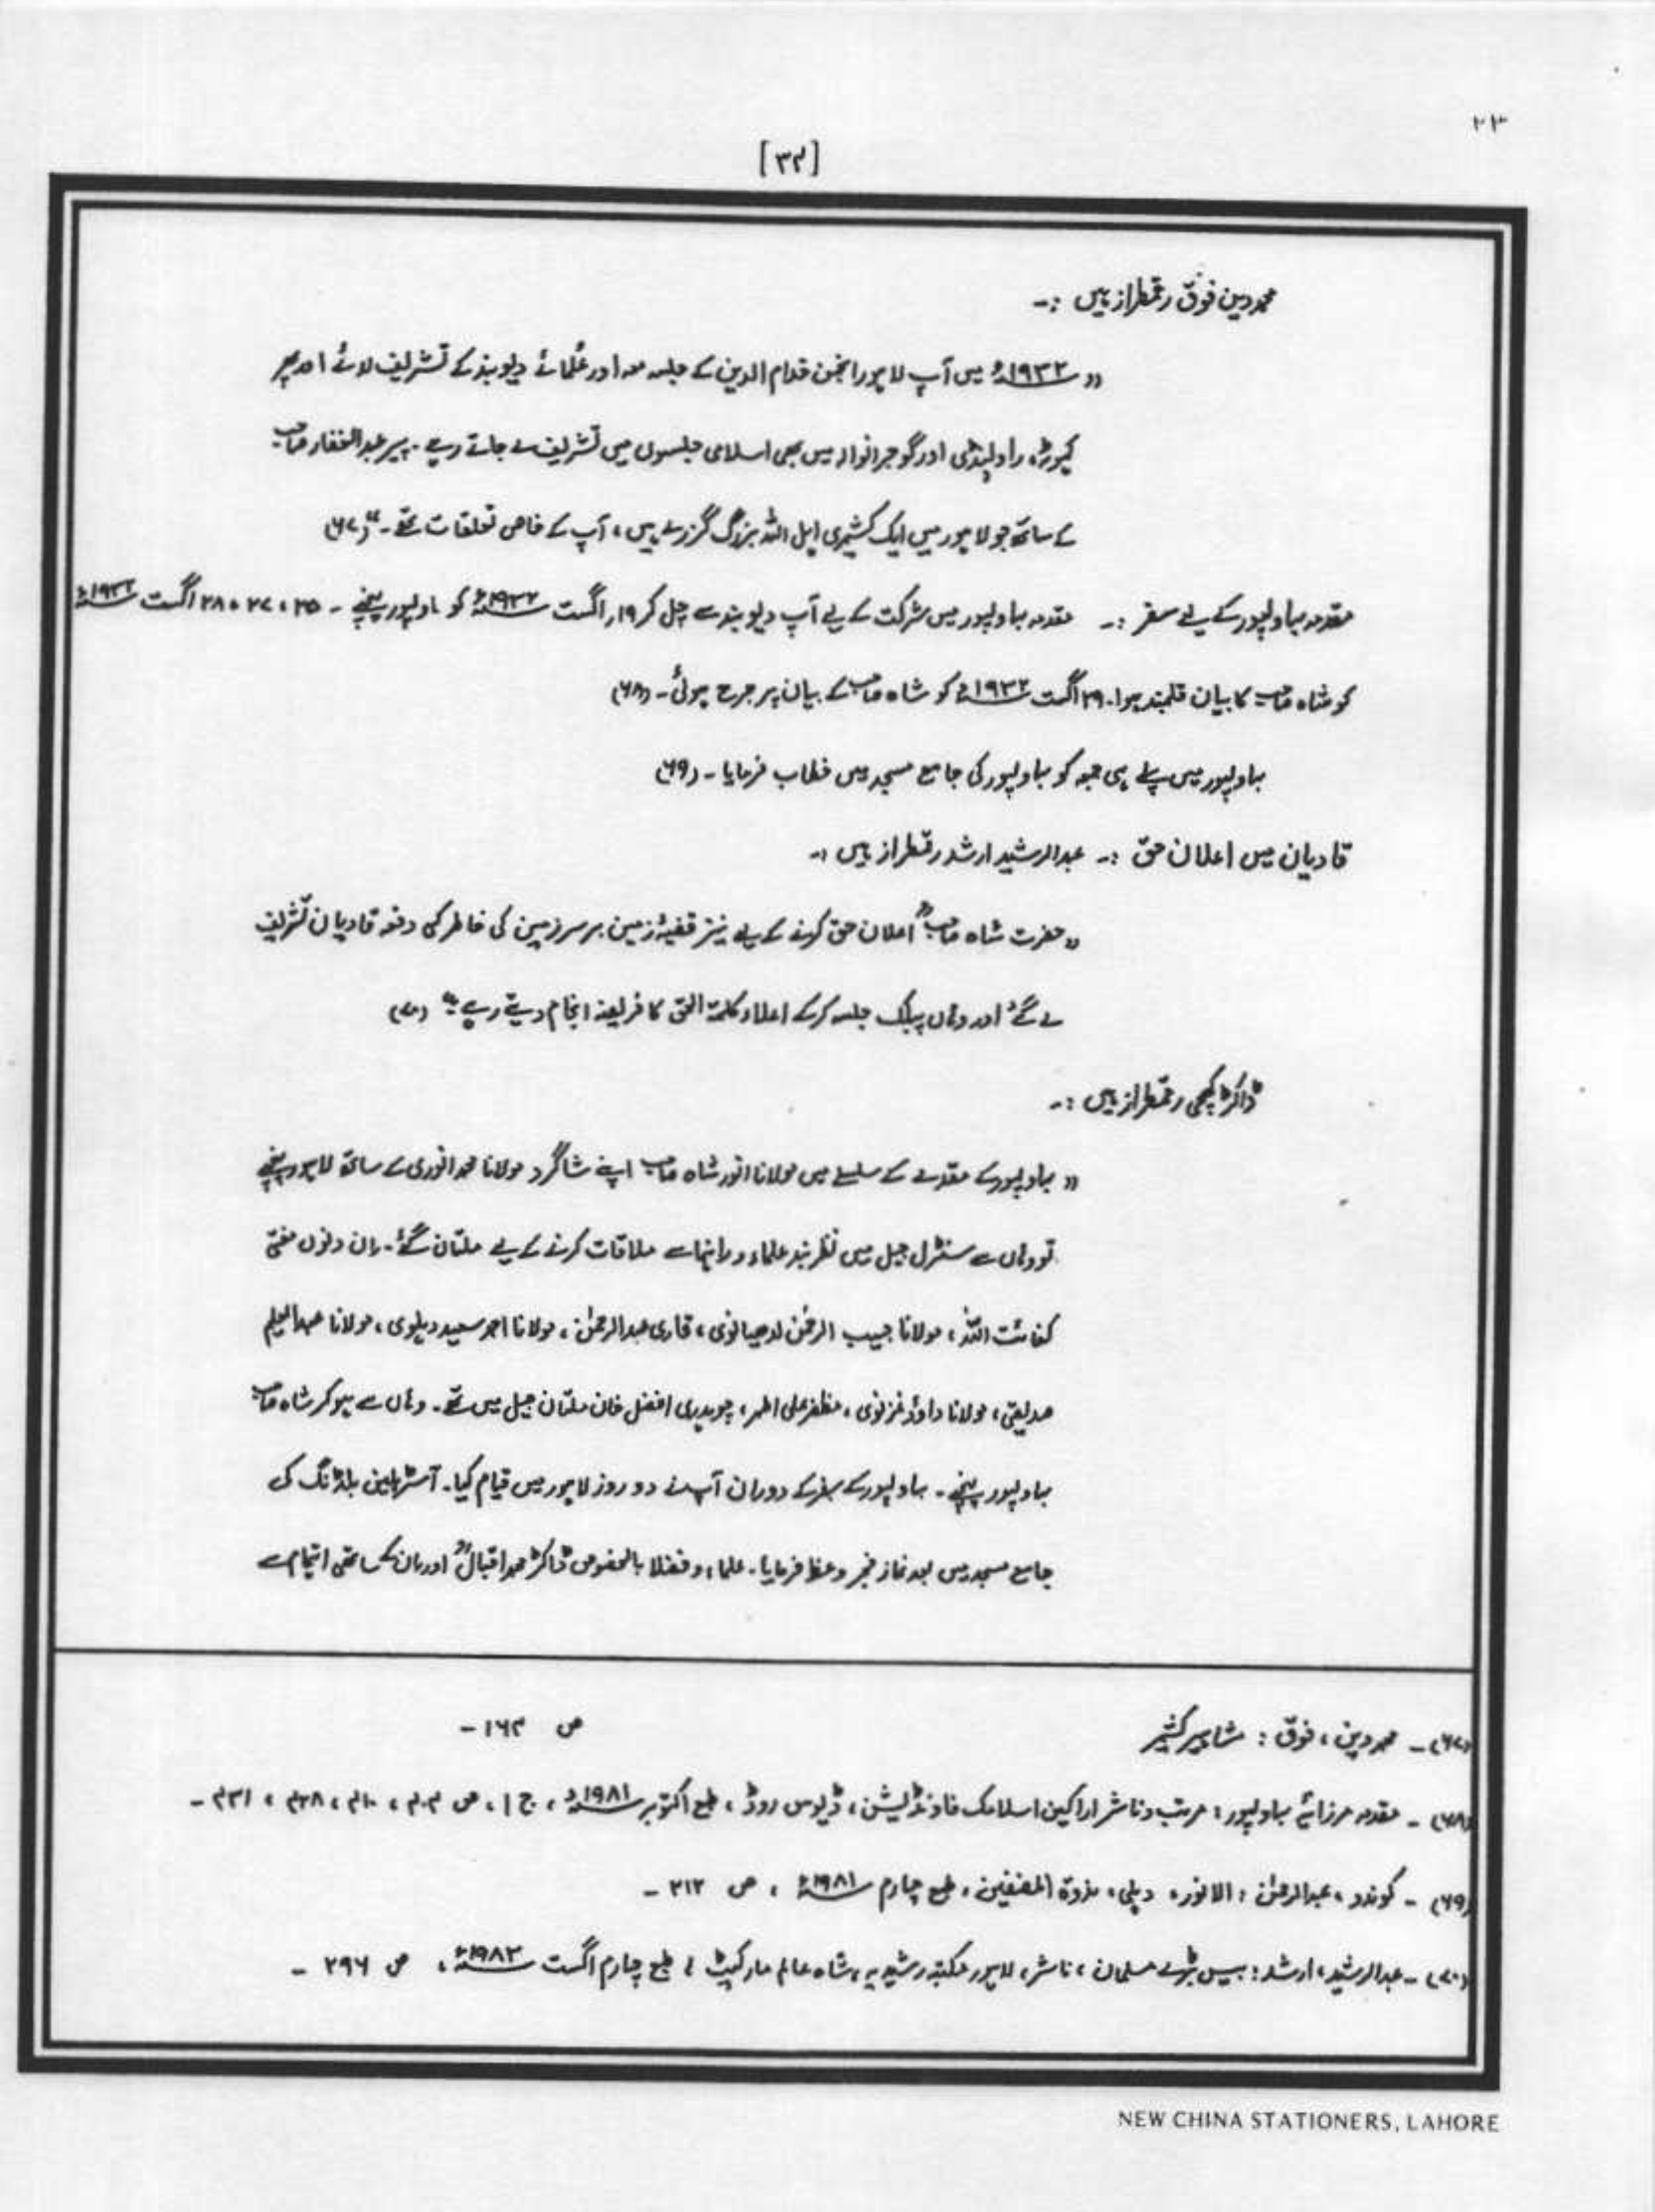 ۲۳
[۳۴]
محمد دین فوق رقمطراز ہیں :۔
"۱۹۳۲ء میں آپ لاہور انجمن خدام الدین کے جلسہ معہ اور علمائے دیوبند کے تشریف لائے اور پھر
کہوٹہ، راولپنڈی اور گوجرانوالہ میں بھی اسلامی جلسوں میں تشریف لے جاتے رہے۔ پیر عبدالغفار صاحب
کے ساتھ جو لاہور میں ایک کشمیری اہل اللہ بزرگ گزرے ہیں، آپ کے خاص تعلقات تھے۔" (۶۷)
مقدمہ بہاولپور کے لیے سفر :۔ مقدمہ بہاولپور میں شرکت کے لیے آپ دیوبند سے چل کر ۱۹/ اگست ۱۹۳۲ء کو بہاولپور پہنچے ۔ ۲۵، ۲۷، ۲۸ اگست ۱۹۳۲ء
کو شاہ صاحب کا بیان قلمبند ہوا۔ ۲۹ اگست ۱۹۳۲ء کو شاہ صاحب کے بیان پر جرح ہوئی۔ (۶۸)
بہاولپور میں پہلے ہی جمعہ کو بہاولپور کی جامع مسجد میں خطاب فرمایا۔ (۶۹)
قادیان میں اعلان حق :۔ عبدالرشید ارشد رقمطراز ہیں :۔
"حضرت شاہ صاحبؒ اعلان حق کرنے کے لیے نیز قضیۂ زمین برسر زمین کی خاطر کئی دفعہ قادیان تشریف
لے گئے اور وہاں پبلک جلسہ کرکے اعلاء کلمۃ الحق کا فریضہ انجام دیتے رہے۔" (۷۰)
ڈاکٹر رقمطراز ہیں :۔
"بہاولپور کے مقدمے کے سلسلے میں مولانا انور شاہ صاحب اپنے شاگرد مولانا محمد انوری کے ساتھ لاہور پہنچے
تو وہاں سے سنٹرل جیل میں نظر بند علماء و راہنما سے ملاقات کرنے کے لیے ملتان گئے۔ ان دنوں مفتی
کفائت اللہ، مولانا حبیب الرحمٰن لدھیانوی، قاری عبدالرحمٰن، مولانا احمد سعید دہلوی، مولانا عبدالحلیم
صدیقی، مولانا داؤد غزنوی، مظفر علی اظہر، چوہدری افضل خان ملتان جیل میں تھے۔ وہاں سے ہو کر شاہ صاحب
بہاولپور پہنچے۔ بہاولپور کے سفر کے دوران آپ نے دو روز لاہور میں قیام کیا۔ آسٹریلین بلڈنگ کی
جامع مسجد میں بعد نماز فجر وعظ فرمایا۔ علماء و فضلا بالخصوص ڈاکٹر محمد اقبالؒ اور ان کے ساتھی اہتمام سے
(۶۷)۔ محمد دین، فوق : مشاہیر کشمیر ص ۱۶۴ ۔
(۶۸)۔ مقدمہ مرزائیہ بہاولپور : مرتب و ناشر اراکین اسلامک فاونڈیشن، ڈیوس روڈ، طبع اکتوبر ۱۹۸۱ء، ج ۱، ص ۴۰۴، ۴۱۰، ۴۲۸، ۴۳۱ ۔
(۶۹)۔ کوندو، عبدالرحمٰن : الانور، دہلی، ندوۃ المصنفین، طبع چہارم ۱۹۸۱ء، ص ۳۱۲ ۔
(۷۰)۔ عبدالرشید، ارشد : بیس بڑے مسلمان، ناشر، لاہور مکتبہ رشیدیہ، شاہ عالم مارکیٹ، طبع چہارم اگست ۱۹۸۳ء، ص ۲۹۶ ۔
NEW CHINA STATIONERS, LAHORE